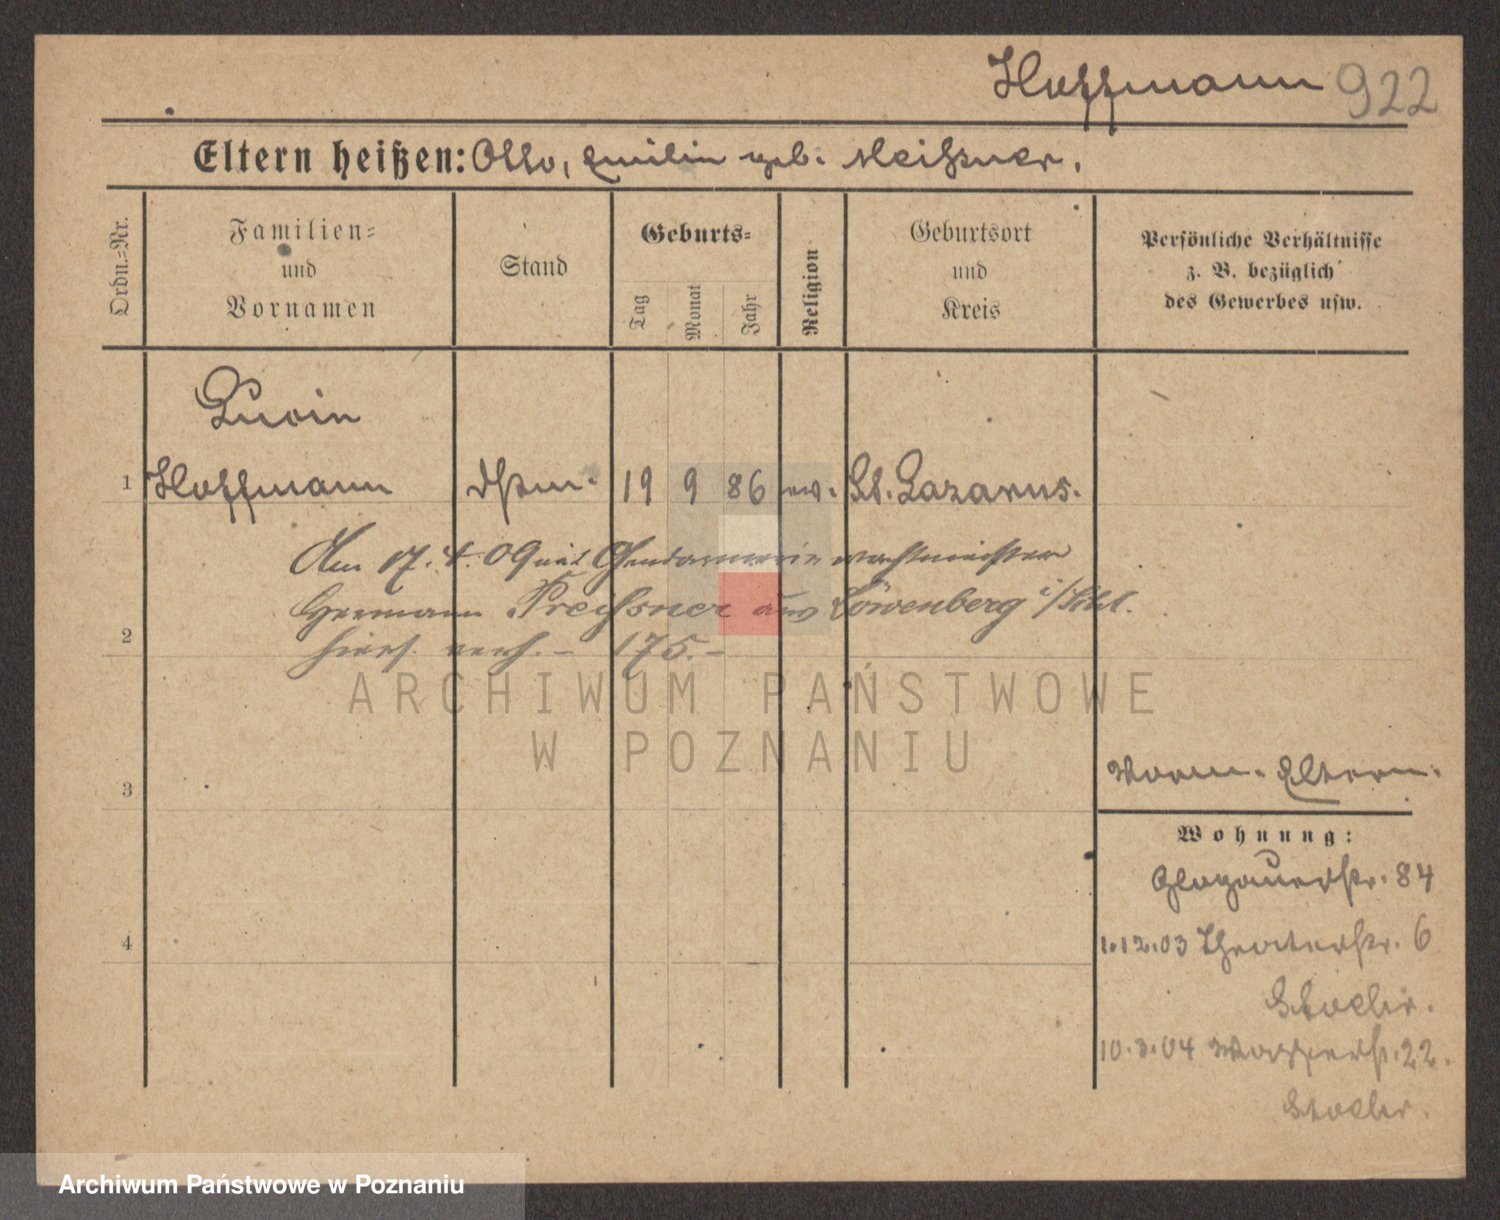 Hoffmann 922
Eltern heißen: Otto, Emilie geb. Meißner.
Ordn.-Nr.
Familien-
und
Vornamen
Stand
Geburts-
Tag
Monat
Jahr
Religion
Geburtsort
und
Kreis
Persönliche Verhältnisse
z. B. bezüglich
des Gewerbes usw.
Lucie
1 Hoffmann 19 9 86 ev. St. Lazarus.
Am 17. 4. 09 mit Gendarmeriewachtmeister
Hermann aus Löwenberg i/Schl.
2
hiers. verh. – 175.–
ARCHIWUM PAŃSTWOWE
W POZNANIU
3
Eltern.
Wohnung:
Glogauerstr. 84
4
1.12.03 Theaterstr. 6
10.3.04 Wasserstr. 22.
Archiwum Państwowe w Poznaniu